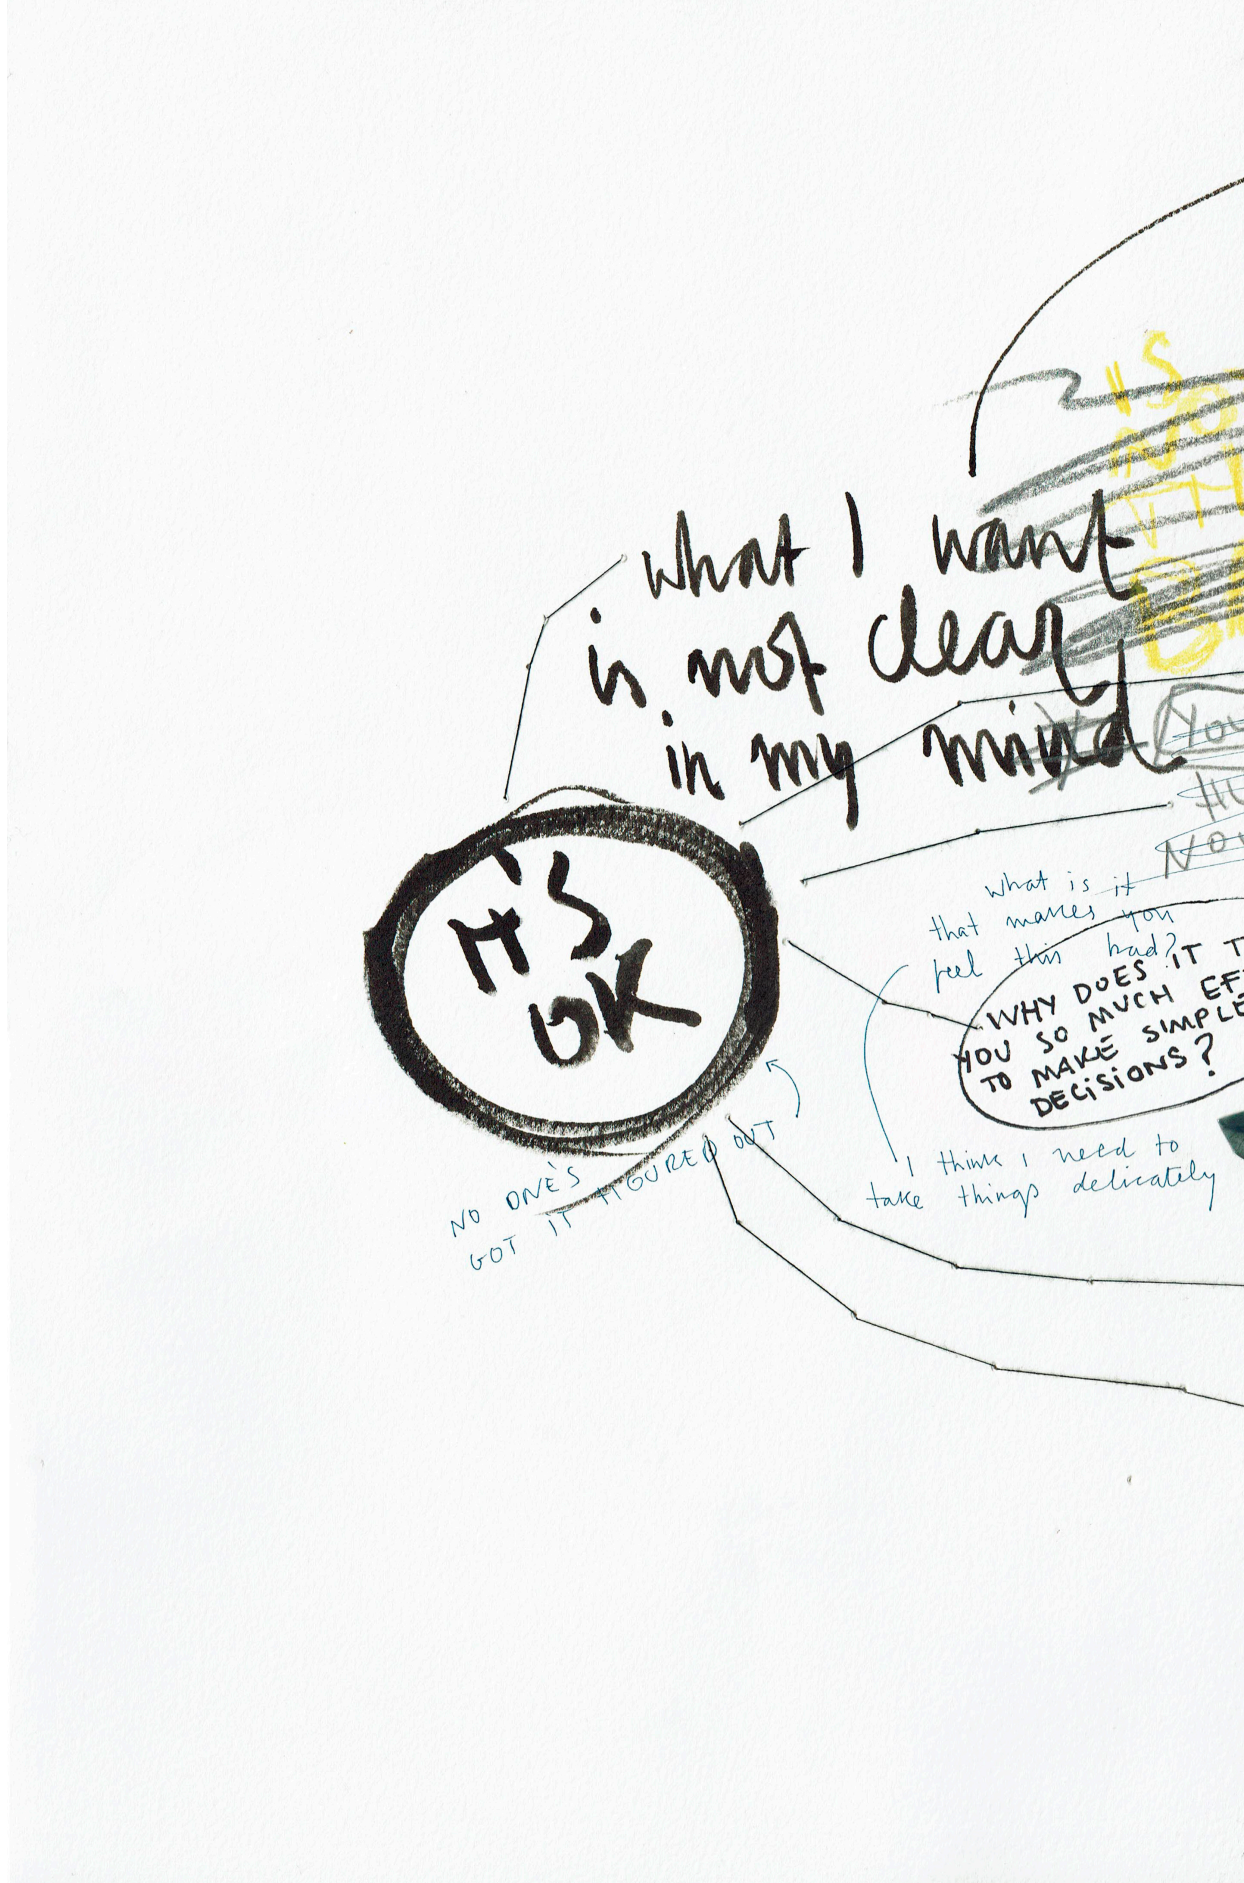 IS
NO
TH
what I want
is not clear
in my mind
YOU
NOW
IT'S
OK
what is it
that makes you
feel this bad?
WHY DOES IT T
YOU SO MUCH EF
TO MAKE SIMPLE
DECISIONS?
I think I need to
take things delicately
NO ONE'S
GOT IT FIGURED OUT